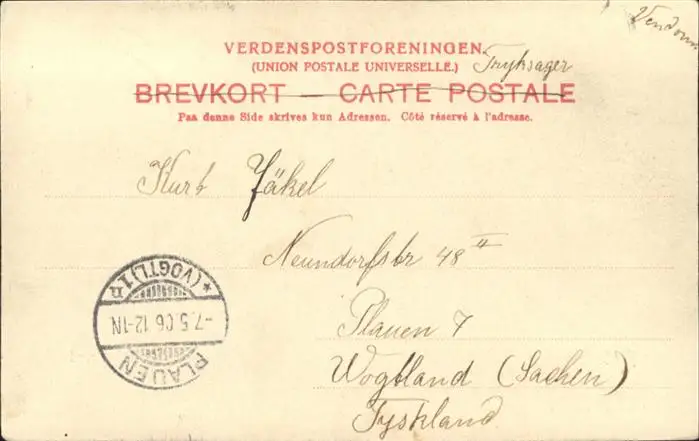 VERDENSPOSTFORENINGEN.
(UNION POSTALE UNIVERSELLE.) Tryksager
BREVKORT — CARTE POSTALE
Paa denne Side skrives kun Adressen. Côté réservé à l'adresse.
Kurt Jäkel
Neundorfstr 48 II
Plauen 7
Wogtland (Sachen)
Tyskland
PLAUEN
-7.5.06 12-1N.
* (VOGTL) 1